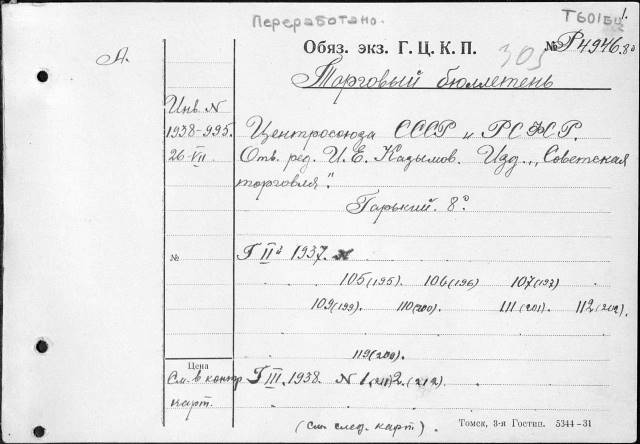 Переработано.
Т601БЦ 1.
А.
Обяз. экз. Г. Ц. К. П.
303
№ Р4946.8°
Торговый бюллетень
Инв. N
1938-995.
26-VII
Центросоюза СССР и РСФСР.
Отв. ред. И. Е. Кадымов. Изд. „Советская
торговля".
Горький. 8°
№
Г II й 1937.
105(195). 106(196) 107(197)
109(199). 110(200). 111(201). 112(202).
119(200).
Цена
См. в контр. карт.
Г III. 1938. N 1(211) 2(212)
(см. след. карт).
Томск, 3-я Гостип. 5344-31